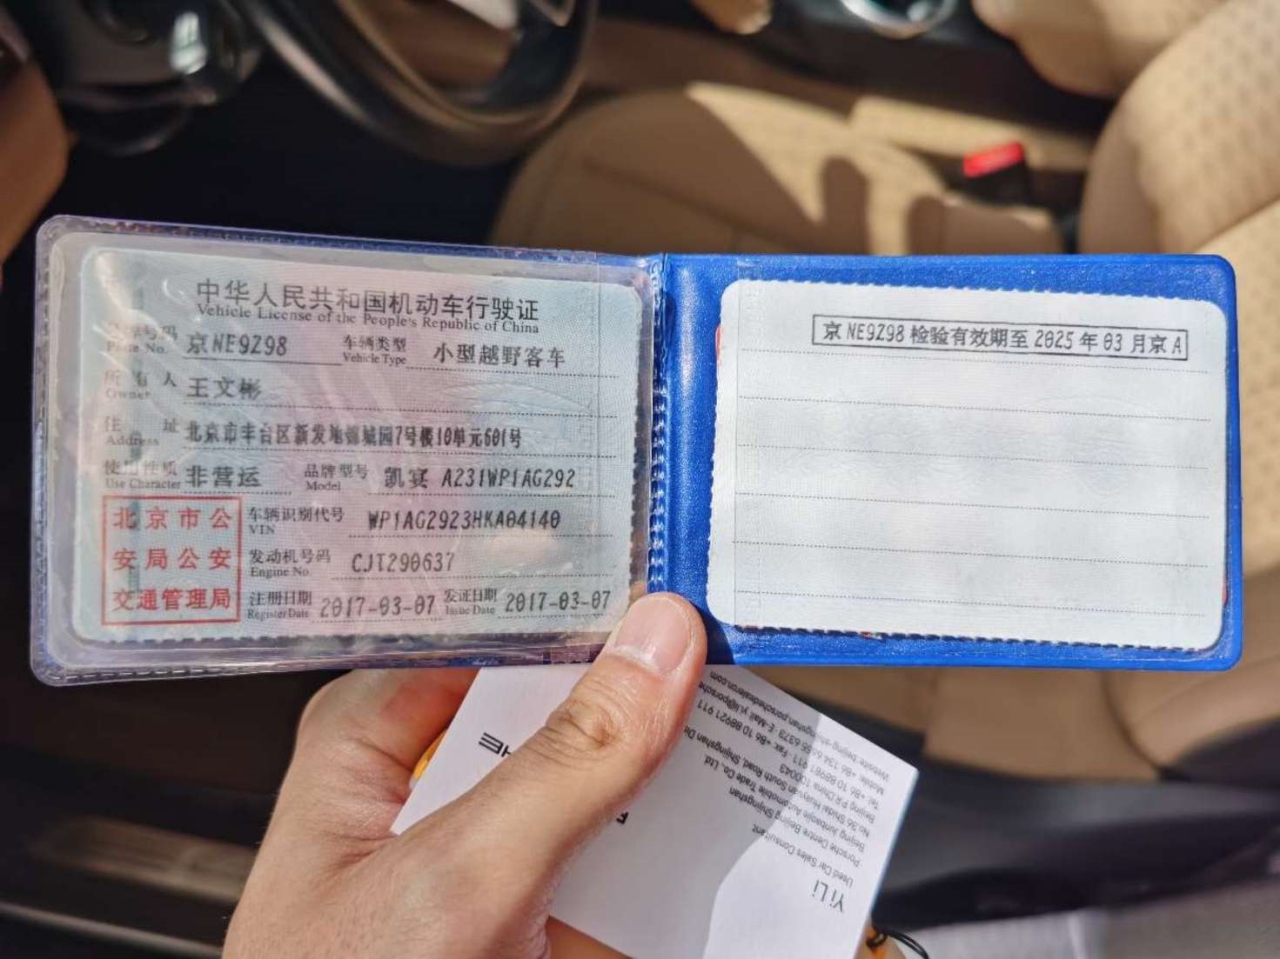 中华人民共和国机动车行驶证
Vehicle License of the People's Republic of China
号牌号码 京NE9Z98 车辆类型 小型越野客车
Plate No. Vehicle Type
所有人 王文彬
Owner
住址 北京市丰台区新发地锦城园7号楼10单元601号
Address
使用性质 非营运 品牌型号 凯宴 A231WP1AG292
Use Character Model
北京市公
安局公安
交通管理局
车辆识别代号 WP1AG2923HKA04140
VIN
发动机号码 CJT290637
Engine No.
注册日期 2017-03-07 发证日期 2017-03-07
Register Date Issue Date
京NE9Z98 检验有效期至 2025 年 03 月京A
Yi Li
Used Car Sales Consultant
Porsche Centre Beijing Shijingshan
Beijing Junbaojie Automobile Trade Co., Ltd.
No.36 Shidai Huayuan South Road, Shijingshan
Beijing P.R.China 100043
Tel: +86 10 88981 911 Fax: +86 10 88921 911